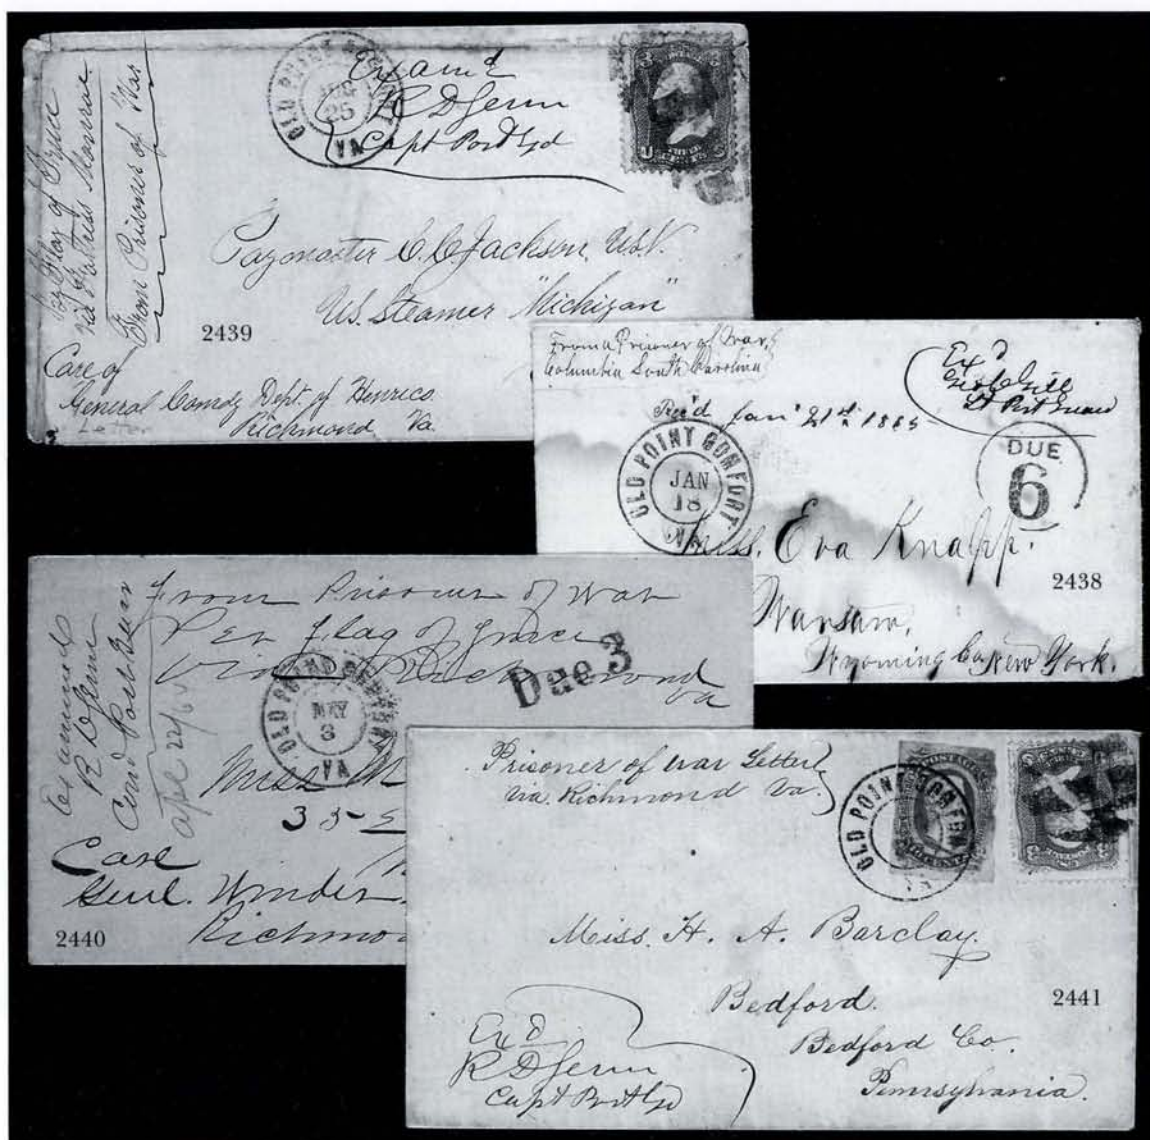 By Flag of Truce
via Fortress Monroe
From Prisoner of War
OLD POINT COMFORT
AUG
25
VA
Exam'd
Capt Post Gd
Paymaster C. C. Jackson, U.S.N.
U.S. Steamer "Michigan"
2439
Care of
General Comdg Dept. of Henrico
Richmond Va.
Letter
From a Prisoner of War,
Columbia South Carolina
Ex'd
Lt Post Guard
Rec'd Jan' 21st 1865
OLD POINT COMFORT
JAN
18
VA
DUE
6
Miss. Eva Knapp.
2438
Warsaw,
Wyoming Co. New York.
Examined
Post
April 22/64
From Prisoner of War
Per flag of Truce
via Richmond
Va
Due 3
OLD POINT COMFORT
MAY
3
VA
Miss M
35
Care
Genl. Winder
Richmo
2440
Prisoner of War Letter
via Richmond Va.
OLD POINT COMFORT
VA
Miss. H. A. Barclay.
Bedford.
2441
Bedford Co.
Pennsylvania.
Ex'd
Capt Post Gd